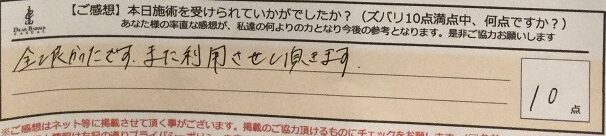 【ご感想】本日施術を受けられていかがでしたか？（ズバリ10点満点中、何点ですか？）
あなた様の率直な感想が、私達の何よりの力となり今後の参考となります。是非ご協力お願いします
良かったです。また利用させて頂きます
10点
※ご感想はネット等に掲載させて頂く事がございます。掲載のご協力頂けるものにチェックをお願い